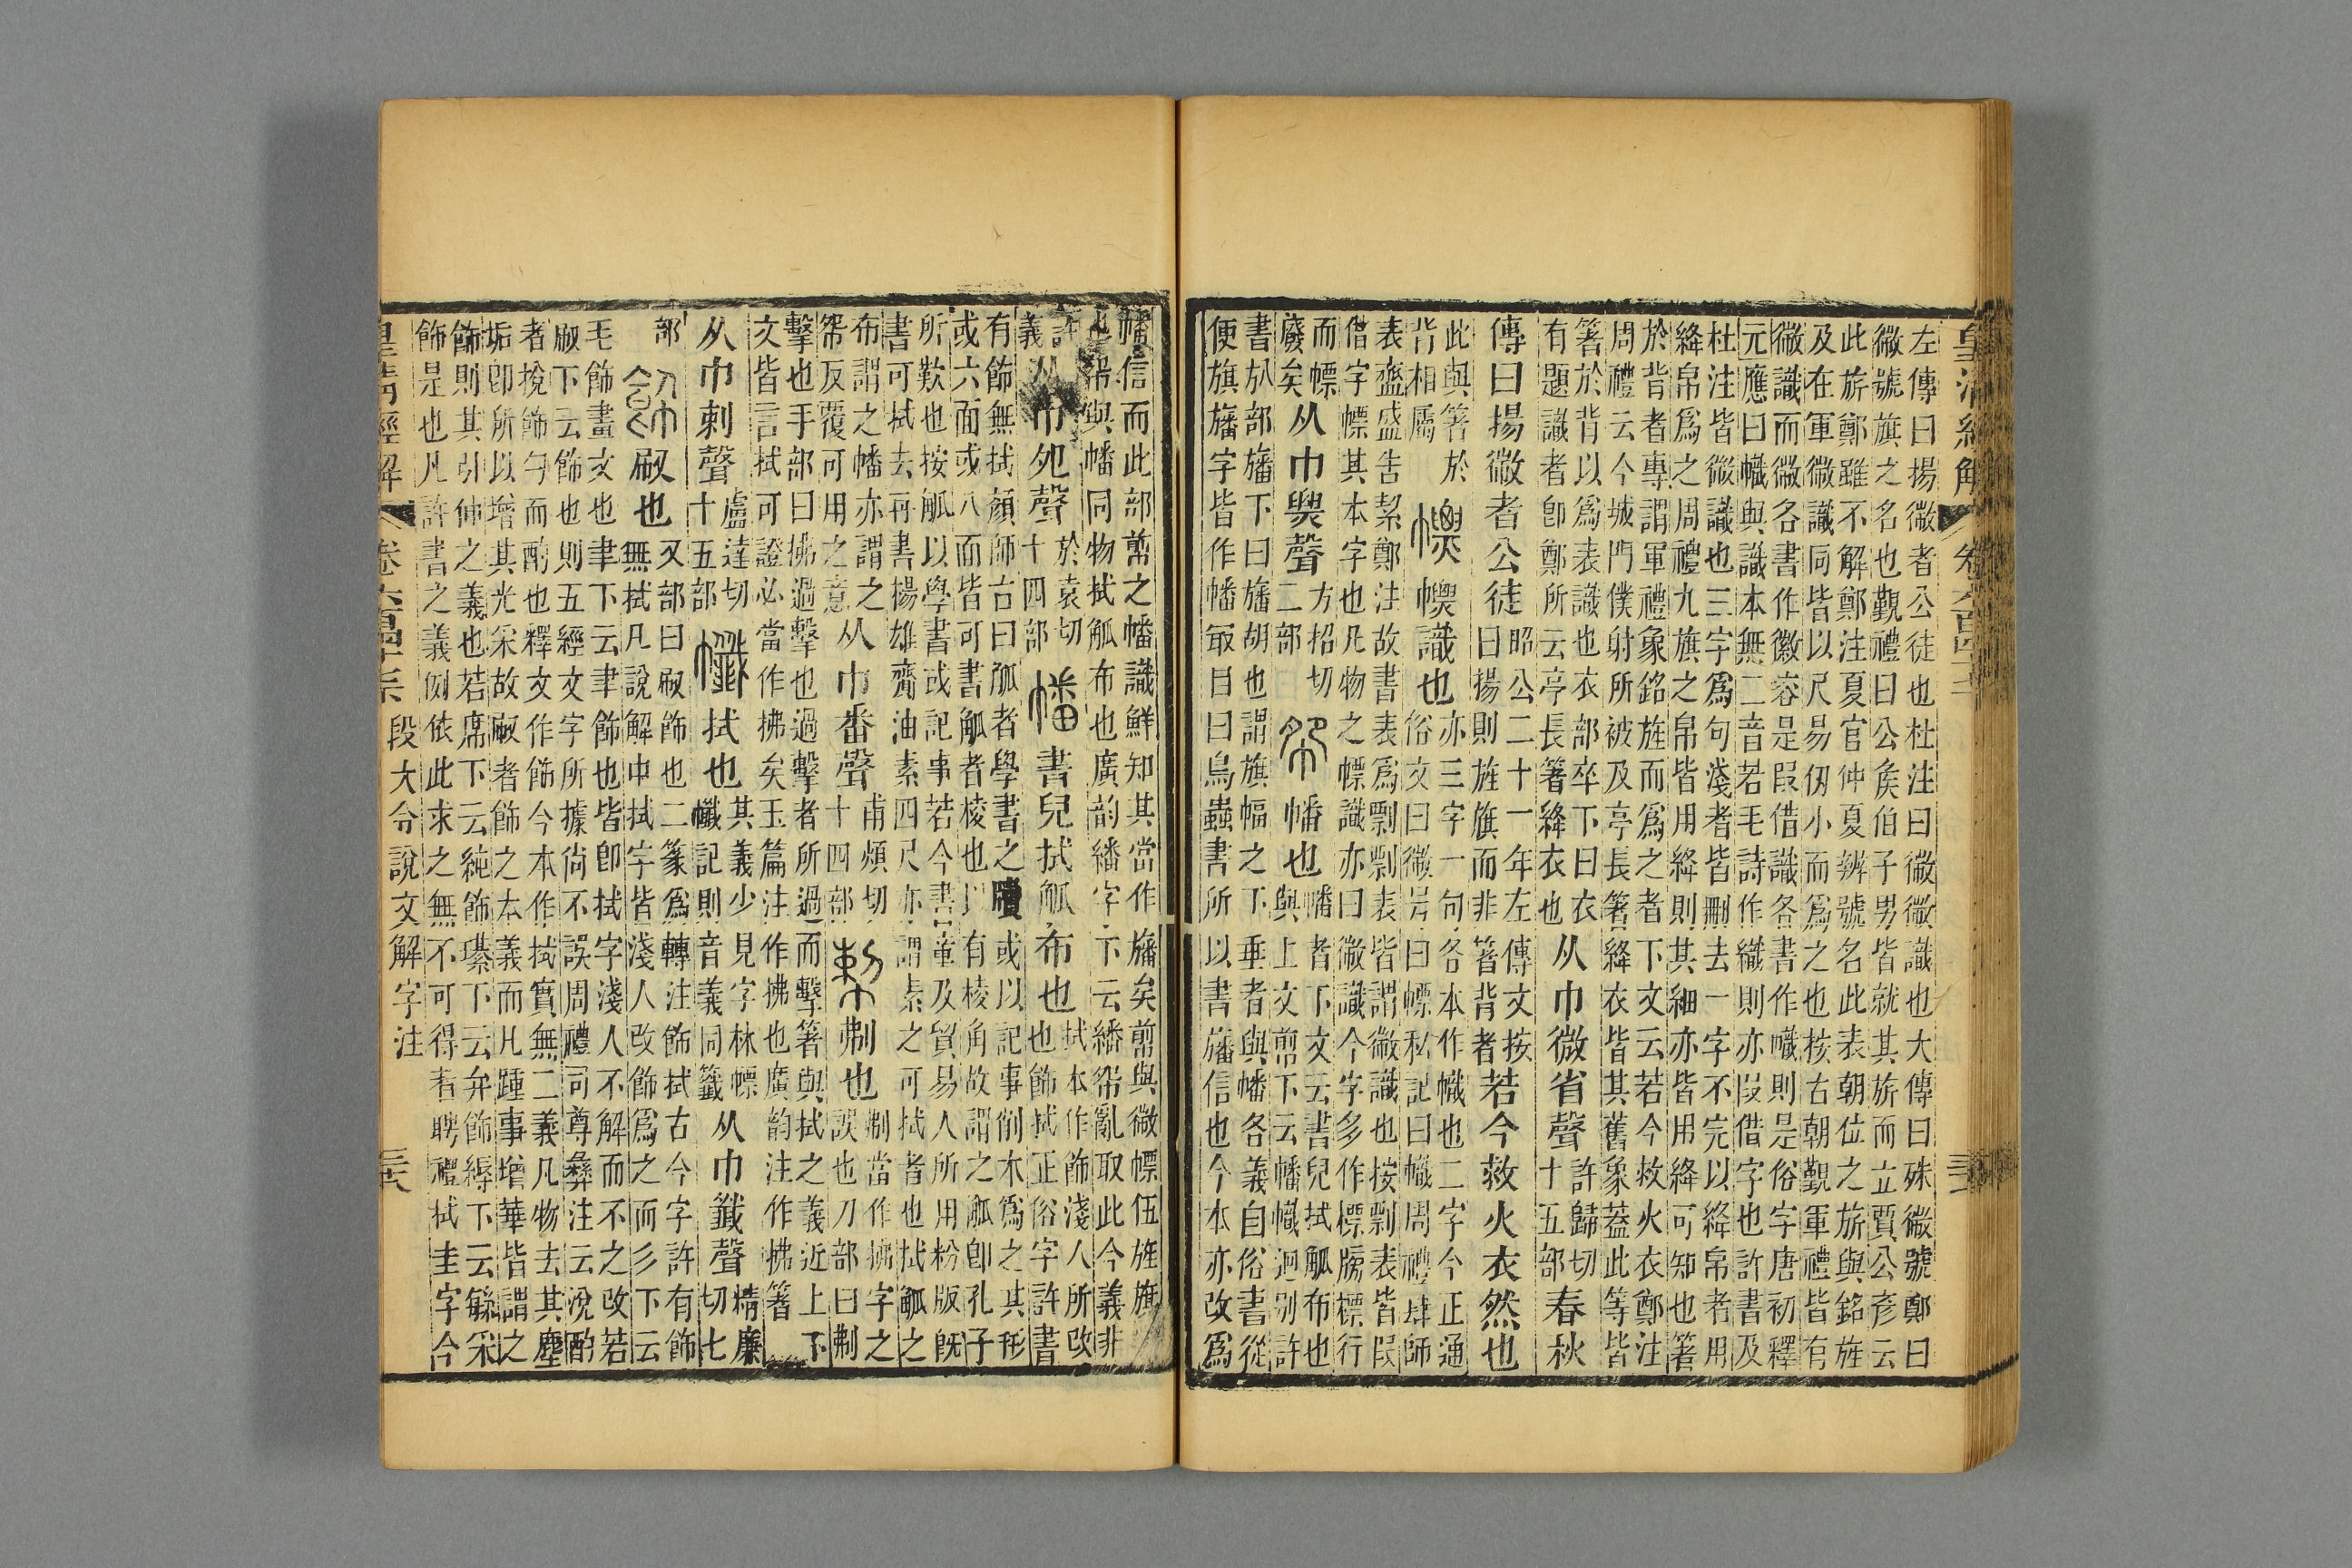 皇清經解
左傳曰揚徽者公徒也杜注曰徽徽識也大傳曰殊徽號鄭曰
徽號旗之名也覲禮曰公矦伯子男皆就其旂而立賈公彥云
此旂鄭雖不解鄭注夏官仲夏辨號名此表朝位之旂與銘旌
及在軍徽識同皆以尺易仞小而爲之也按古朝覲軍禮皆有
徽識而徽各書作徽容是叚借識各書作幟則是俗字唐初釋
元應曰幟與識本無二音若毛詩作織則亦叚借字也許書及
杜注皆徽識也三字爲句淺者皆刪去一字不完以絳帛者用
絳帛爲之周禮九旗之帛皆用絳則其細亦皆用絳可知也箸
於背者專謂軍禮象銘旌而爲之者下文云若今救火衣鄭注
周禮云今城門僕射所被及亭長箸絳衣皆其舊象蓋此等皆
箸於背以爲表識也衣部卒下曰衣
有題識者卽鄭所云亭長箸絳衣也
从巾微省聲
許歸切
十五部
春秋
傳曰揚徽者公徒
昭公二十一年左傳文按
曰揚則旌旗而非箸背者
若今救火衣然也
此與箸於
背相屬
幖識也
亦三字一句各本作幟也二字今正通
俗文曰徽号曰幖私記曰幟周禮肆師
表齍盛告絜鄭注故書表爲剽剽表皆謂徽識也按剽表皆叚
借字幖其本字也凡物之幖識亦曰徽識今字多作標牓標行
而幖
廢矣
从巾㶾聲
方招切
二部
幡也
幡者下文云書兒拭觚布也
與上文㡐下云幡幟迥别許
書㫃部旛下曰旛胡也謂旗幅之下垂者與幡各義自俗書從
便旗旛字皆作幡㝡目曰鳥蟲書所以書旛信也今本亦改爲
幡信而此部㡐之幡識鮮知其當作旛矣㡐與微幖伍旌旗
也帤與幡同物拭觚布也廣韵繙字下云繙帤亂取此今義非
許
義
从巾夗聲
於袁切
十四部
幡
書兒拭觚布也
拭本作飾淺人所改
也飾拭正俗字許書
有飾無拭顏師古曰觚者學書之牘或以記事削木爲之其形
或六面或八面皆可書觚者棱也以有棱角故謂之觚卽孔子
所歎也按觚以學書或記事若今書童及貿易人所用粉版旣
書可拭去再書揚雄齎油素四尺亦謂素之可拭者也拭觚之
布謂之幡亦謂之
㡜反覆可用之意
从巾番聲
甫煩切
十四部
㓨也
㓨當作拂字之
誤也刀部曰㓨
擊也手部曰拂過擊也過擊者所過而擊箸與拭之義近上下
文皆言拭可證必當作拂矣玉篇注作拂也廣韵注作拂著
从巾剌聲
盧達切
十五部
拭也
其義少見字林幖
㡨記則音義同籤
从巾韱聲
精廉
切七
部
飾
㕞也
又部曰㕞飾也二篆爲轉注飾拭古今字許有飾
無拭凡說解中拭字皆淺人改飾爲之而彡下云
毛飾畫文也聿下云聿飾也皆卽拭字淺人不解而不之改若
㕞下云飾也則五經文字所據尙不誤周禮司尊彝注云涚酌
者挩飾勺而酌也釋文作飾今本作拭實無二義凡物去其塵
垢卽所以增其光采故㕞者飾之本義而凡踵事增華皆謂之
飾則其引伸之義也若席下云純飾㻪下云弁飾縟下云緐采
飾是也凡許書之義例依此求之無不可得者聘禮拭圭字今
皇清經解
段大令說文解字注
三六